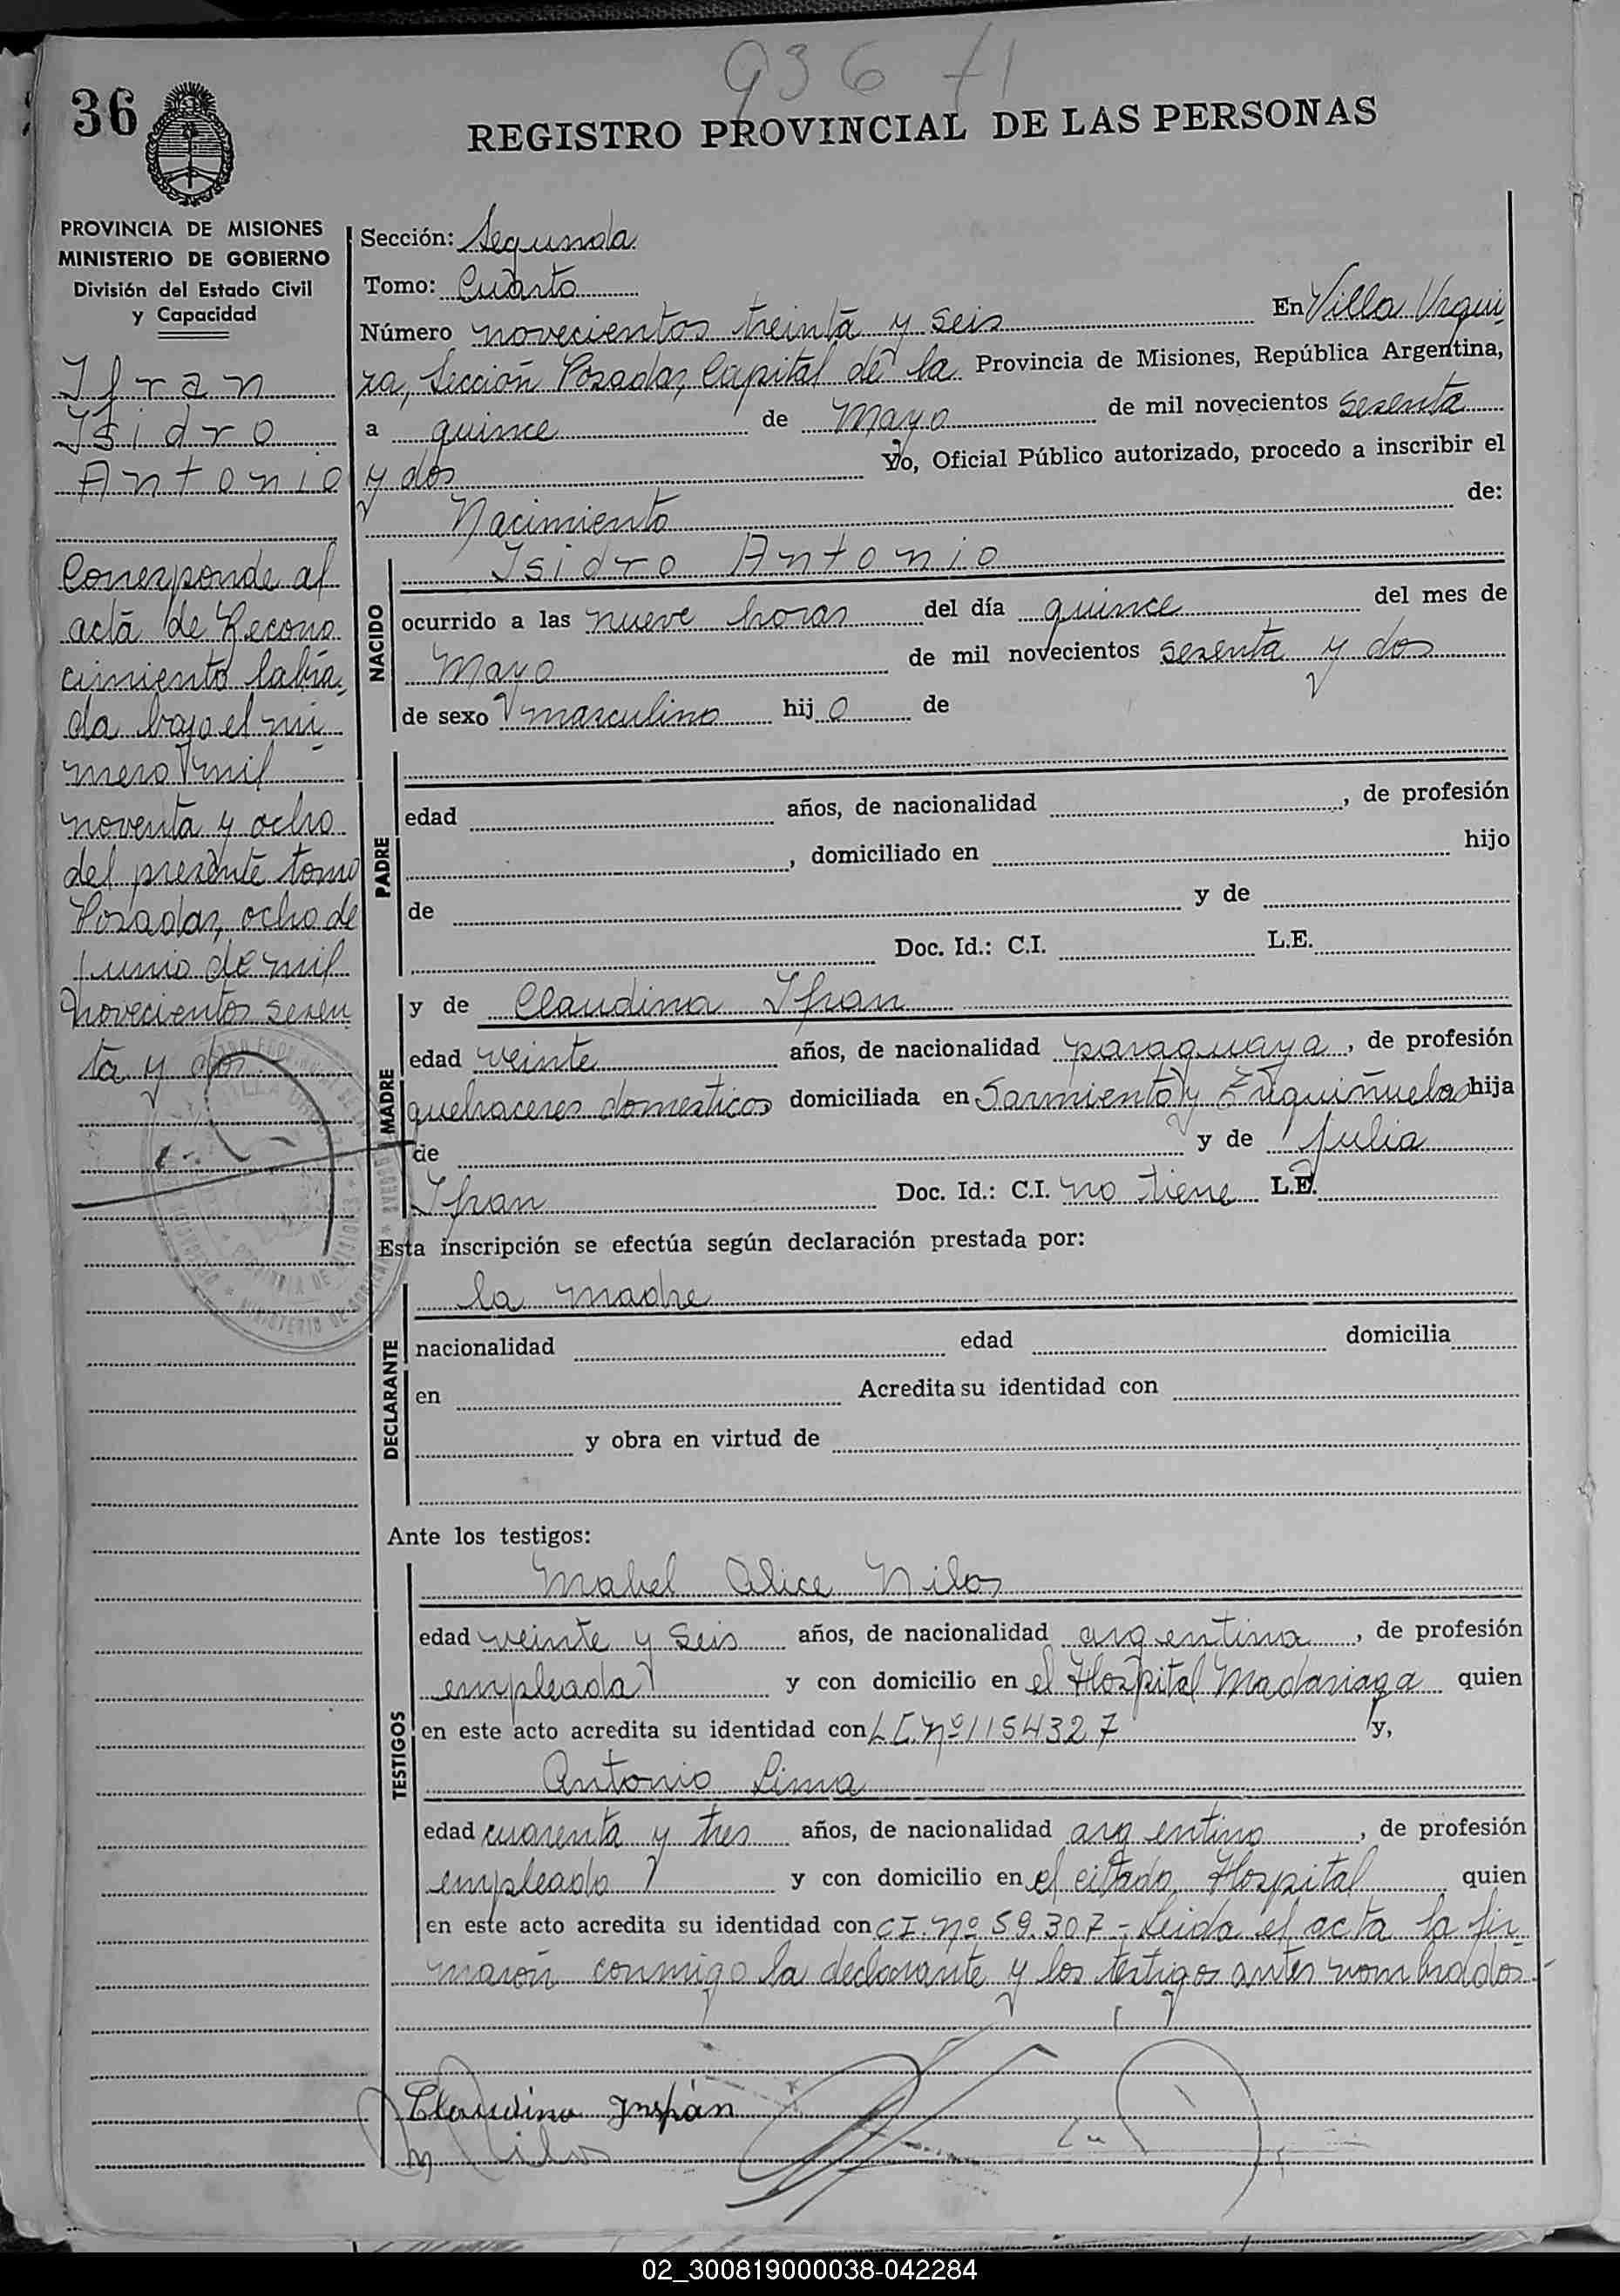 936 f1
36
REGISTRO PROVINCIAL DE LAS PERSONAS
PROVINCIA DE MISIONES
MINISTERIO DE GOBIERNO
División del Estado Civil
y Capacidad
Ifran
Isidro
Antonio
Corresponde al
acta de Recono
cimiento labra_
da bajo el nú
mero mil
noventa y ocho
del presente tomo
Posadas, ocho de
junio de mil
novecientos sesen
ta y dos.-
Sección: Segunda
Tomo: Cuarto
Número novecientos treinta y seis En Villa Urqui-
za, Sección Posadas, Capital de la Provincia de Misiones, República Argentina,
a quince de Mayo de mil novecientos sesenta
y dos Yo, Oficial Público autorizado, procedo a inscribir el
Nacimiento de:
NACIDO
Isidro Antonio
ocurrido a las nueve horas del día quince del mes de
Mayo de mil novecientos sesenta y dos
de sexo masculino hijo de
PADRE
edad años, de nacionalidad , de profesión
, domiciliado en hijo
de y de
Doc. Id.: C.I. L.E.
MADRE
y de Claudina Ifran
edad veinte años, de nacionalidad paraguaya, de profesión
quehaceres domesticos domiciliada en Sarmiento y hija
de y de Julia
Ifran Doc. Id.: C.I. no tiene L.E.
Esta inscripción se efectúa según declaración prestada por:
DECLARANTE
la madre
nacionalidad edad domicilia
en Acredita su identidad con
y obra en virtud de
Ante los testigos:
TESTIGOS
Mabel Alice Nilos
edad veinte y seis años, de nacionalidad argentina, de profesión
empleada y con domicilio en el Hospital Madariaga quien
en este acto acredita su identidad con L.C. Nº 1154327 y,
Antonio Lima
edad cuarenta y tres años, de nacionalidad argentino, de profesión
empleado y con domicilio en el citado Hospital quien
en este acto acredita su identidad con C.I. Nº 59.307 - Leida el acta la fir_
maron conmigo la declarante y los testigos antes nombrados.-
Claudina
02_300819000038-042284